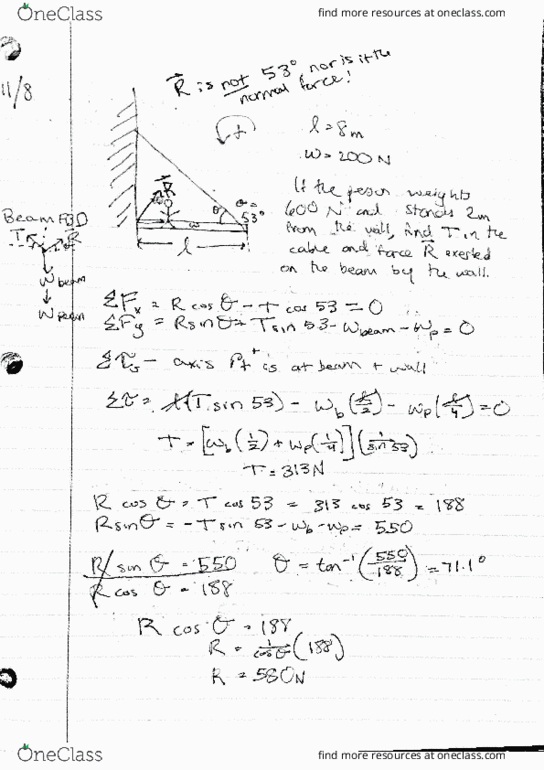 OneClass
find more resources at oneclass.com
11/8
R is not 53° nor is it the
normal force!
+
l = 8m
w = 200N
If the person weights
600 N and stands 2m
from the wall, find T in the
cable and force R exerted
on the beam by the wall.
R
θ
θ = 53°
w
l
Beam FBD
T R
W beam
W person
ΣFx = R cos θ - T cos 53 = 0
ΣFy = R sin θ + T sin 53 - Wbeam - Wp = 0
Στ - axis Pt is at beam + wall
Στ = l(T sin 53) - Wb (l/2) - Wp (l/4) = 0
T = [Wb (1/2) + Wp (1/4)] (1/sin 53)
T = 313N
R cos θ = T cos 53 = 313 cos 53 = 188
R sin θ = -T sin 53 - Wb - Wp = 550
R sin θ = 550 θ = tan⁻¹ (550/188) = 71.1°
R cos θ = 188
R cos θ = 188
R = 1/cos θ (188)
R = 580N
OneClass
find more resources at oneclass.com